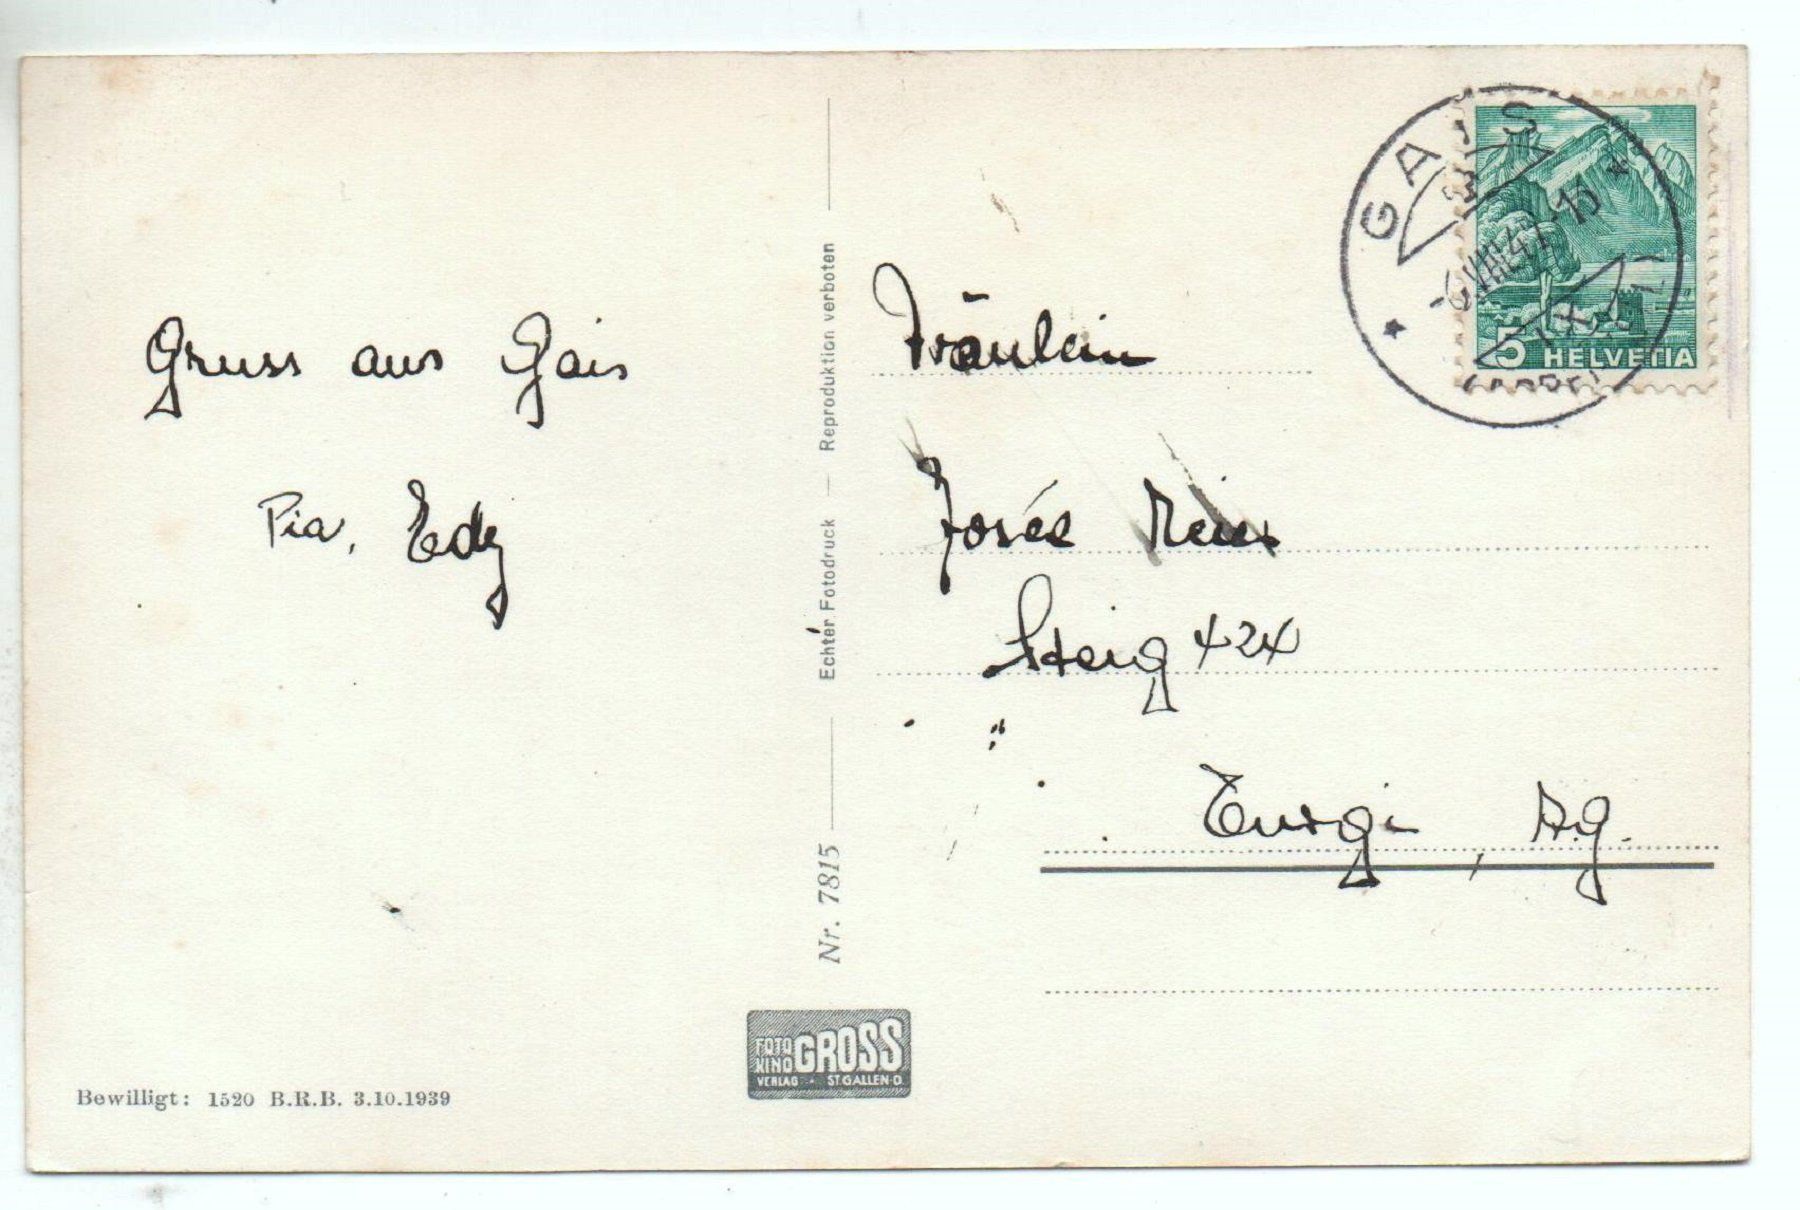 Gruss aus Gais
Pia, Edy
Bewilligt: 1520 B.R.B. 3.10.1939
Nr. 7815
Echter Fotodruck
Reproduktion verboten
FOTO KINO GROSS
VERLAG ST. GALLEN-O
GAIS
5 HELVETIA
Fräulein
Josée Meier
Steig 424
Turgi, Ag.